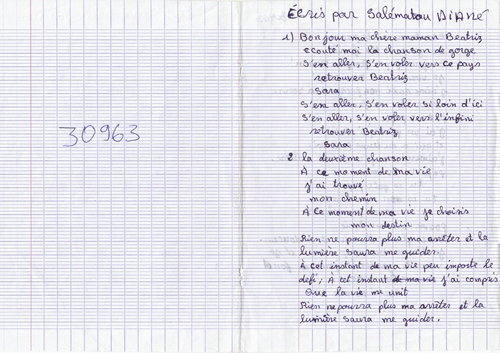 30963
Écris par Salématou DIANÉ
1) Bonjour ma chère maman Beatriz
ecouté moi la chanson de gorge
S'en aller, s'en voler vers ce pays
retrouver Beatriz
Sara
S'en aller, s'en voler si loin d'ici
S'en aller, s'en voler vers l'infini
retrouver Beatriz
Sara
2. la deuxième chanson
À ce moment de ma vie
j'ai trouvé
mon chemin
À ce moment de ma vie je choisis
mon destin
Rien ne pourra plus ma arrêter et la
lumière saura me guider.
À cet instant de ma vie peu importe le
defi, À cet instant de ma vie j'ai compris
Que la vie me unit
Rien ne pourra plus ma arrêter et la
lumière saura me guider.